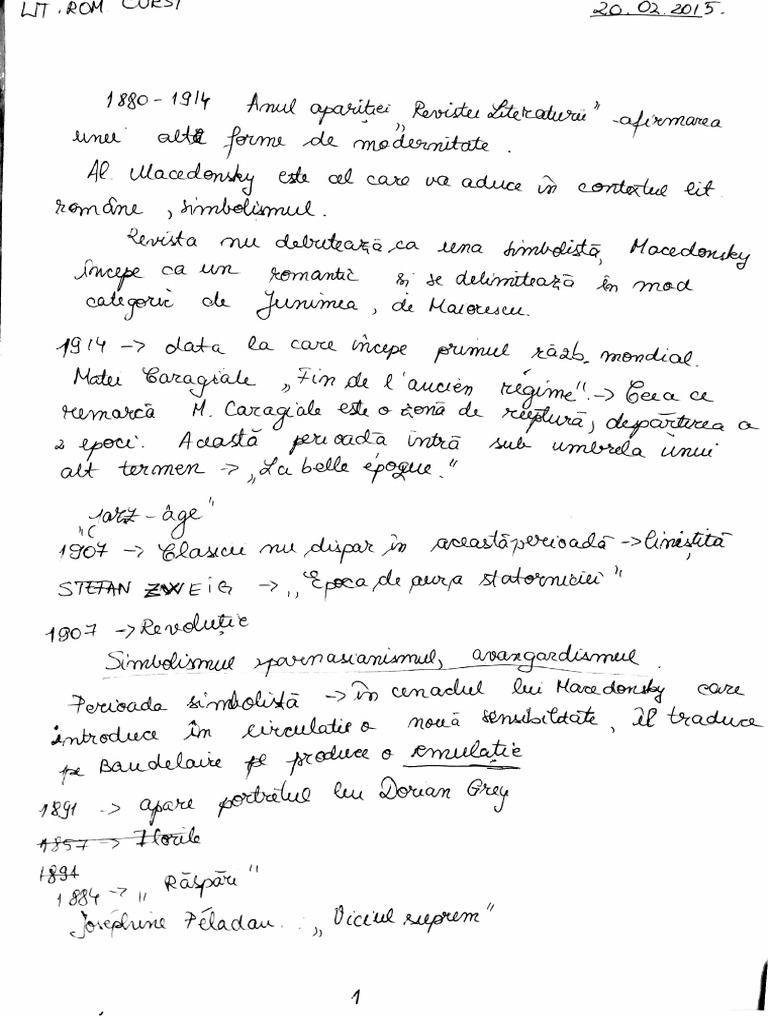 LIT. ROM CURS 1 20.02.2015.
1880-1914 Anul apariției „Revistei Literaturii" -afirmarea
unei alte forme de modernitate.
Al. Macedonsky este cel care va aduce în contextul lit
române, simbolismul.
Revista nu debutează ca una simbolistă, Macedonsky
începe ca un romantic și se delimitează în mod
categoric de Junimea, de Maiorescu.
1914 -> data la care începe primul răzb. mondial.
Matei Caragiale „Fin de l'aucien régime". -> Ceea ce
remarcă M. Caragiale este o zonă de ruptură, depărtirea a
2 epoci. Această perioadă intră sub umbrela unui
alt termen -> „La belle époque."
-âge"
1907 -> Clasicii nu dispar în această perioadă -> liniștită
STEFAN ZWEIG -> „Epoca de aur a statorniciei"
1907 -> Revoluție
Simbolismul, parnasianismul, avangardismul.
Perioada simbolistă -> în cenaclul lui Macedonsky care
introduce în circulație o nouă sensibildate, îl traduce
pe Baudelaire și produce o emulație
1891 -> apare portretul lui Dorian Grey
1857 -> Florile
1891
1884 -> „Răspăr"
Joséphine Péladan. „Viciul suprem"
1